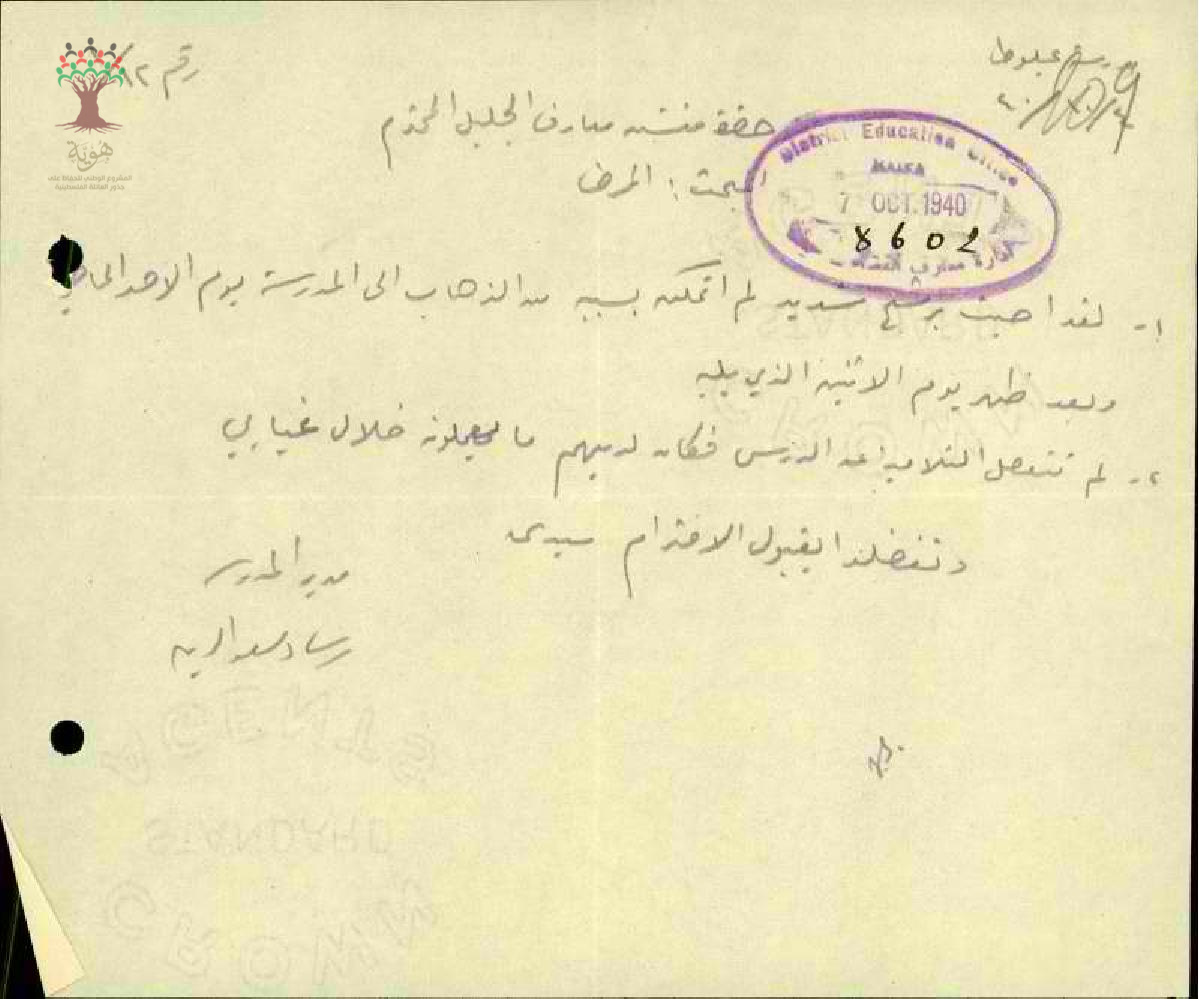 رقم ١٢/
حضرة مفتش معارف الجليل المحترم
المرض
District Education Office
HAIFA
7 OCT. 1940
8602
١- لقد اصبت برشح شديد لم اتمكن بسببه من الذهاب الى المدرسة يوم الاحد الماضي
وبعد ظهر يوم الاثنين الذي يليه
٢- لم تتعطل التلاميذ عن الدرس فكان لديهم ما يعملونه خلال غيابي
وتفضلوا بقبول الاحترام سيدي
مدير المدرسة
رشاد سعد الدين
هوية
المشروع الوطني للحفاظ على
جذور العائلة الفلسطينية
AGENTS
STANDARD
CROWN